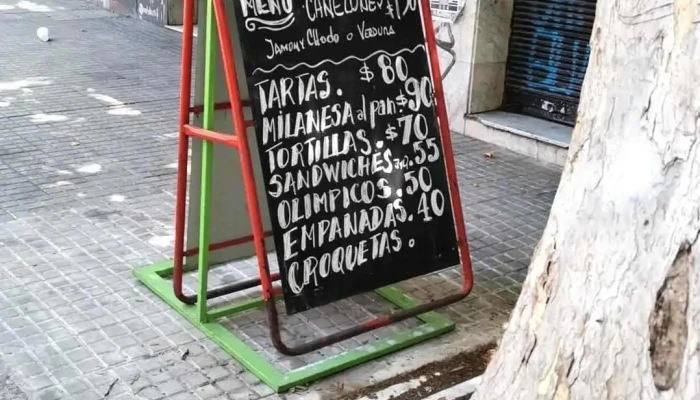 MENU CANELONES
Jamon y CHodo o Verdura
TARTAS. $80
MILANESA al pan. $90
TORTILLAS. $70
SANDWICHES 55
OLIMPICOS. 50
EMPANADAS. 40
CROQUETAS.